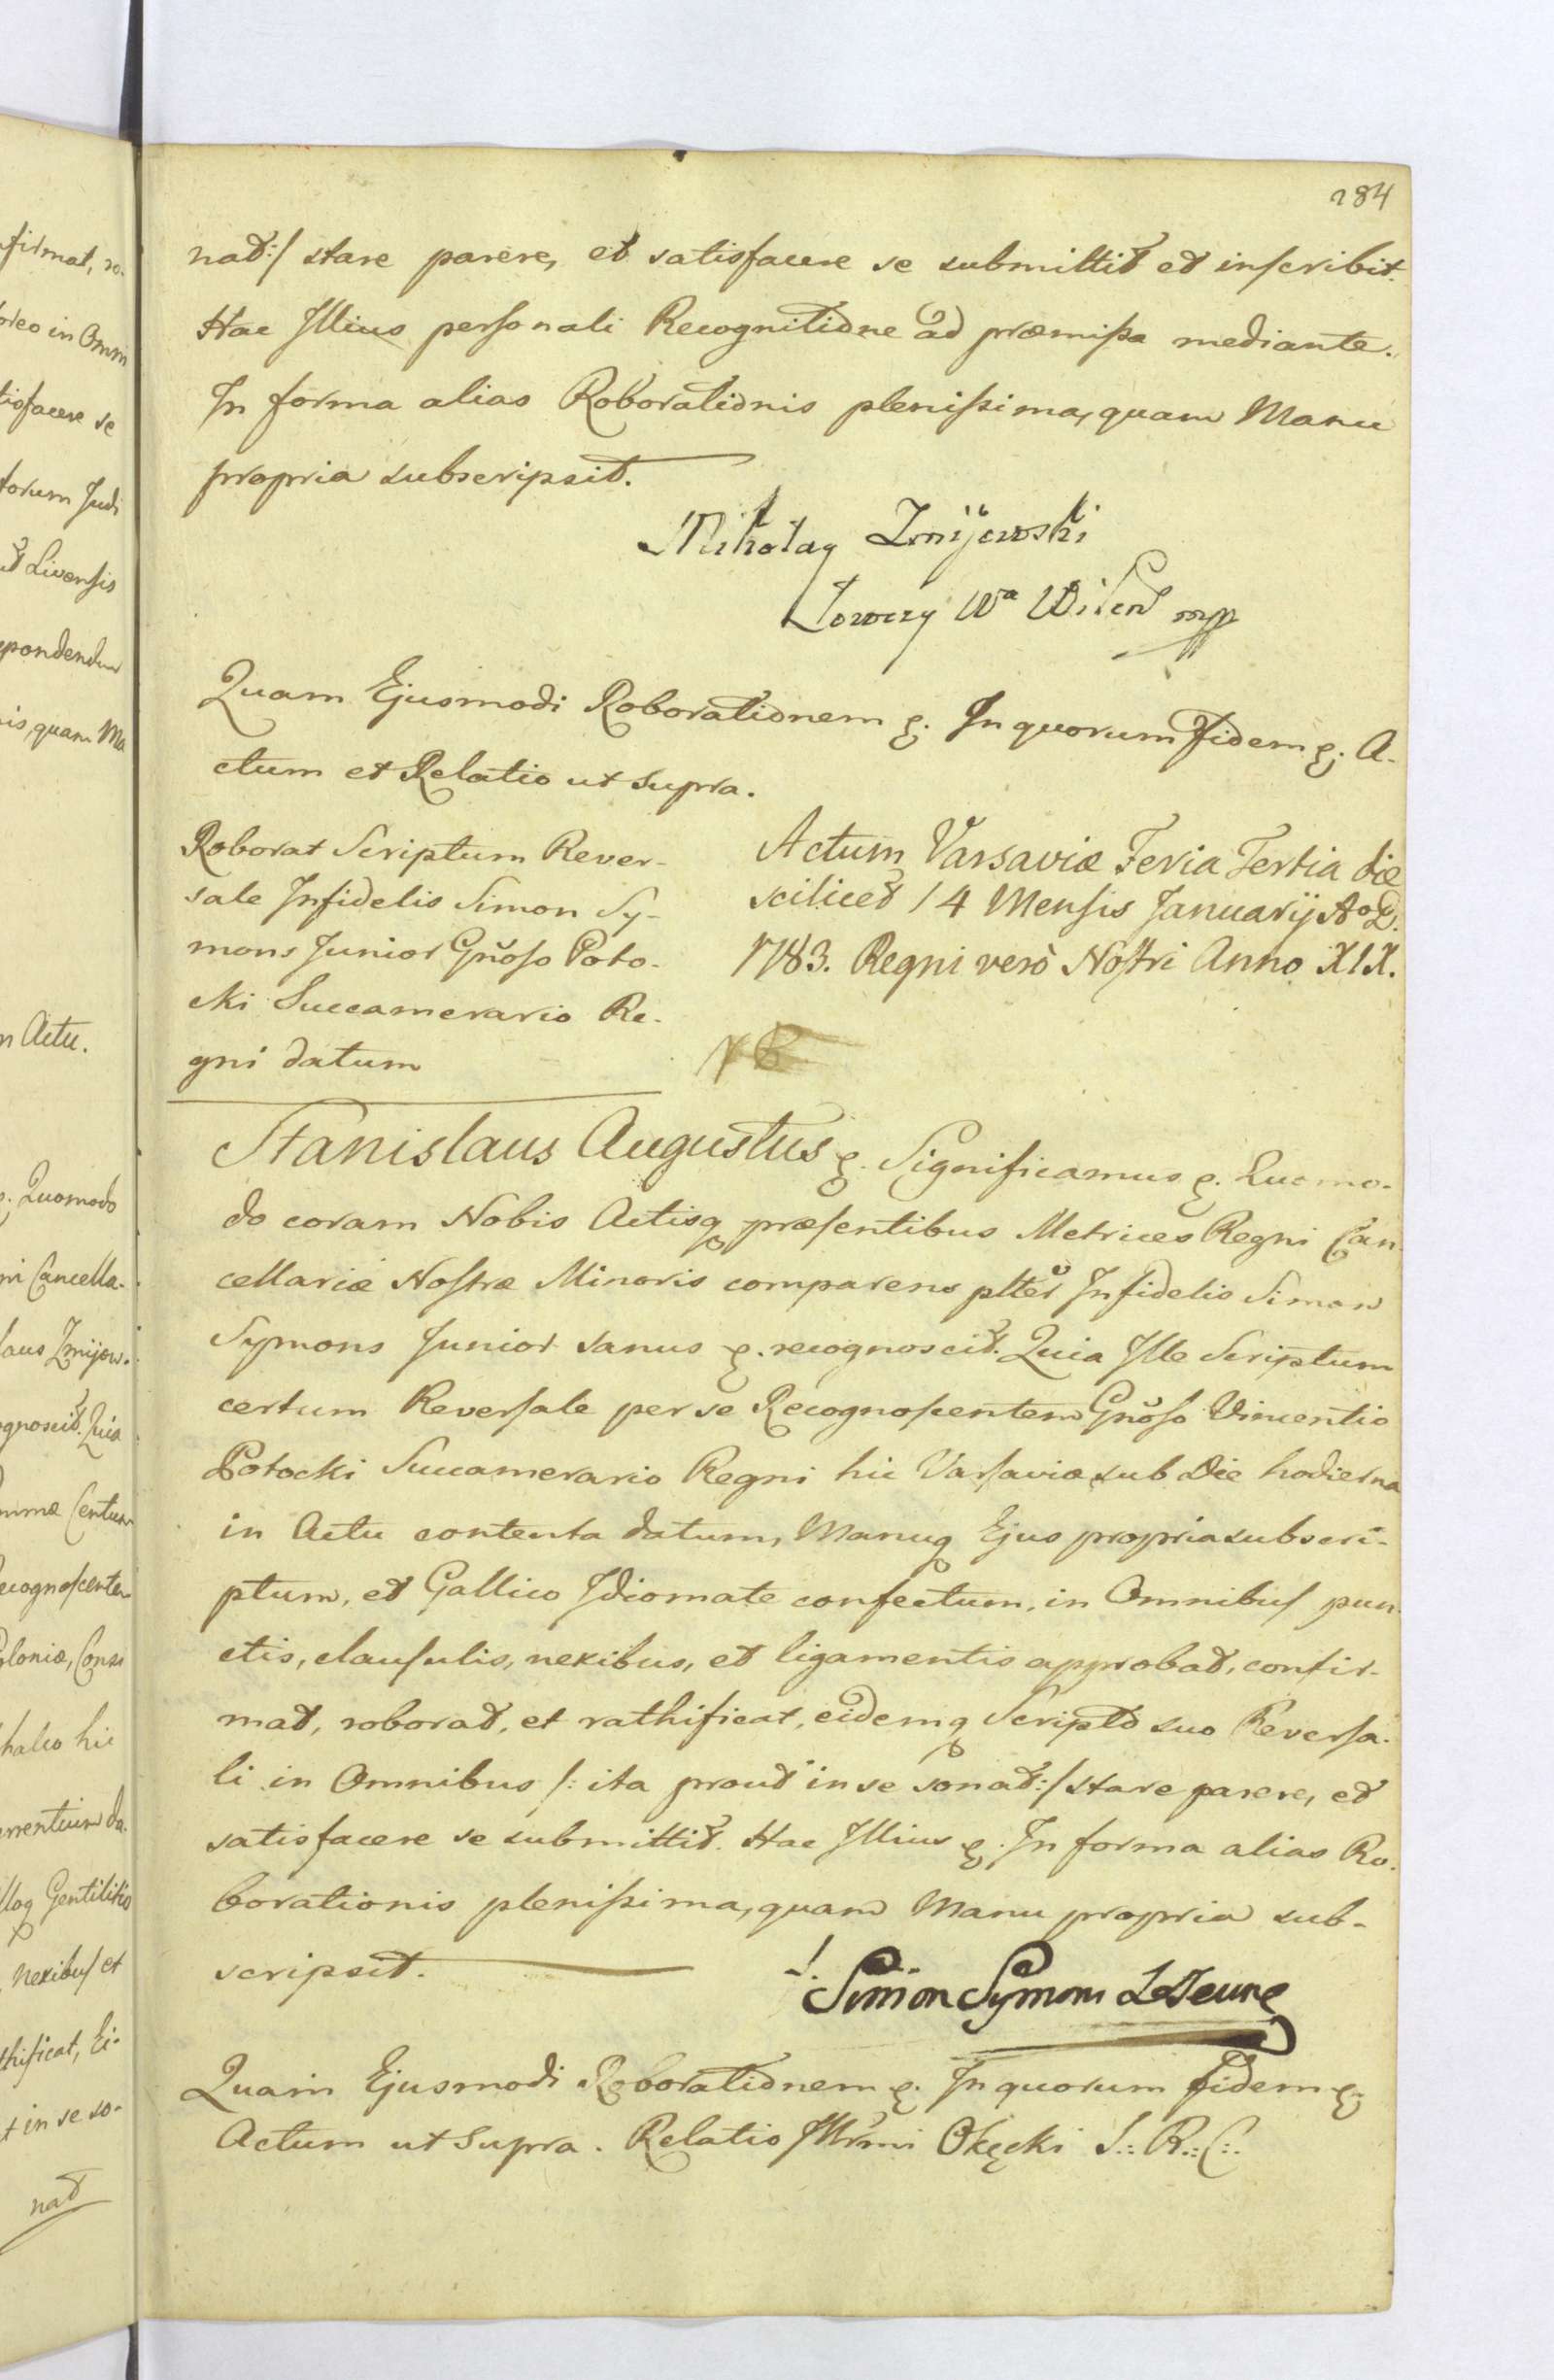 284
nat:/ stare parere, et satisfacere se submittit et inscribit.
Hac Illius personali Recognitione ad præmissa mediante.
In forma alias Roborationis plenissima, quam Manu
propria subscripsit.
Mikołay Zmijewski
Łowczy Wa Wilen mpp
Quam Ejusmodi Roborationem &. In quorum Fidem &. A-
ctum et Relatio ut supra.
Roborat Scriptum Rever-
sale Infidelis Simon Sy-
mons Junior Gnoso Poto-
cki Succamerario Re-
gni datum
Actum Varsaviæ Feria Tertia die
scilicet 14 Mensis Januarij Ao D.
1783. Regni verò Nostri Anno XIX.
Stanislaus Augustus &. Significamus &. Quomo-
do coram Nobis Actisq præsentibus Metrices Regni Can-
cellariæ Nostræ Minoris comparens plter Infidelis Simon
Symons Junior sanus &. recognoscit. Quia Ille Scriptum
certum Reversale per se Recognoscentem Gnoso Vincentio
Potocki Succamerario Regni hic Varsaviæ sub Die hodierna
in Actu contenta datum, Manuq Ejus propria subscri-
ptum, et Gallico Idiomate confectum, in Omnibus pun-
ctis, clausulis, nexibus, et ligamentis approbat, confir-
mat, roborat, et rathificat, eidemq Scripto suo Reversa-
li in Omnibus /: ita prout in se sonat :/ stare parere, et
satisfacere se submittit. Hac Illius &. In forma alias Ro-
borationis plenissima, quam Manu propria sub-
scripsit.
Simon Symons Le Jeune
Quam Ejusmodi Roborationem &. In quorum fidem &
Actum ut Supra. Relatio Illrmi Okęcki S.: R.: C.: